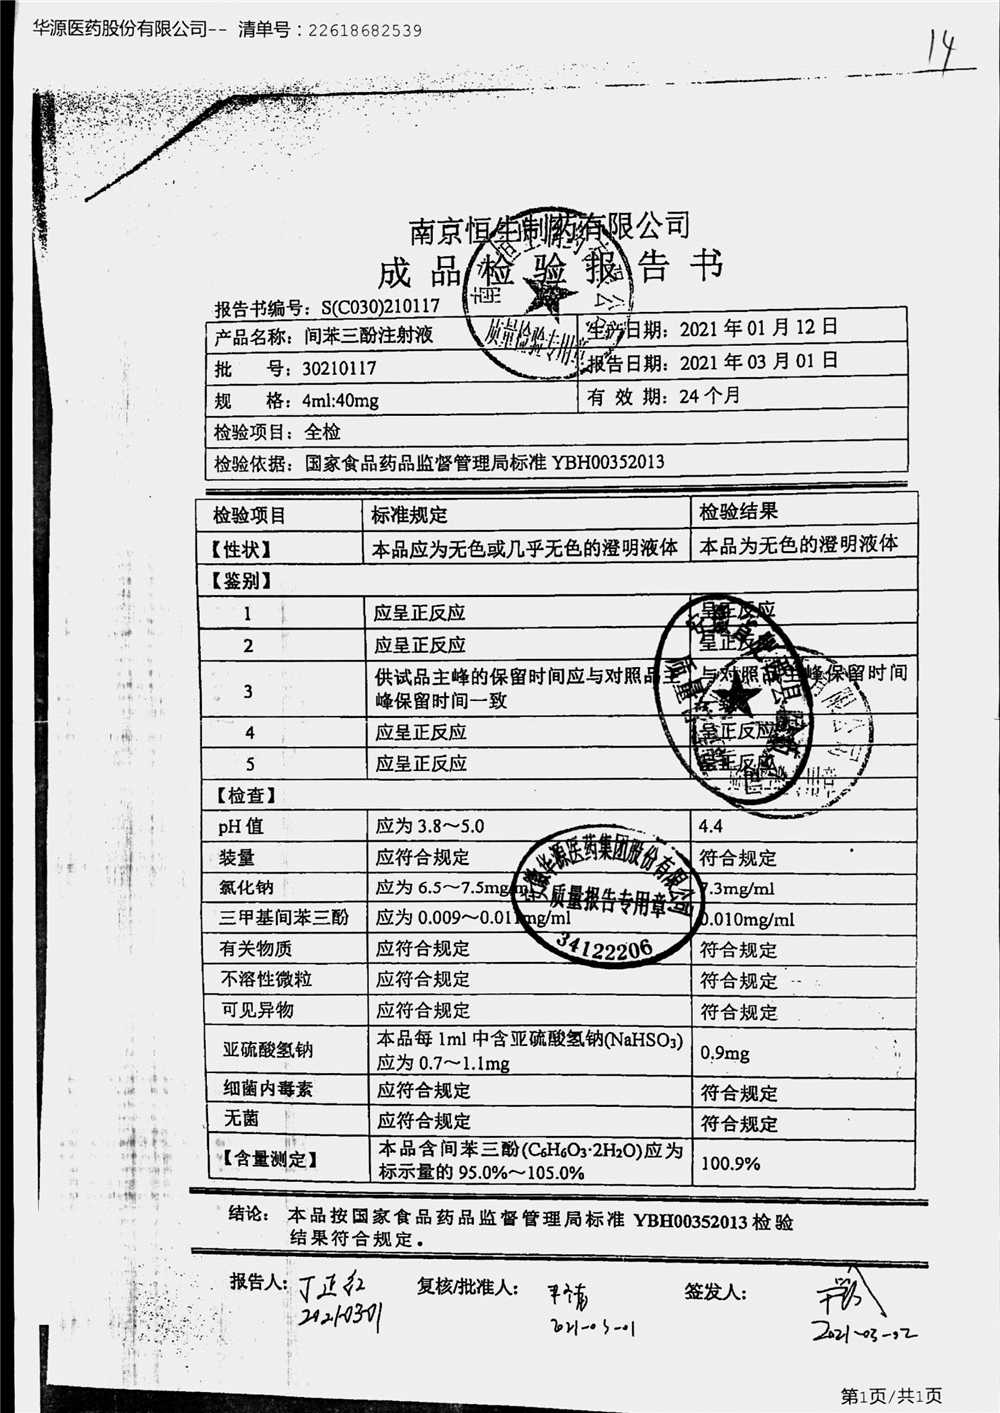 华源医药股份有限公司-- 清单号：22618682539
14
南京恒生制药有限公司
成品检验报告书
报告书编号：S(C030)210117
产品名称：间苯三酚注射液 生产日期：2021年01月12日
批 号：30210117 报告日期：2021年03月01日
规 格：4ml:40mg 有效期：24个月
检验项目：全检
检验依据：国家食品药品监督管理局标准YBH00352013
检验项目 标准规定 检验结果
【性状】 本品应为无色或几乎无色的澄明液体 本品为无色的澄明液体
【鉴别】
1 应呈正反应 呈正反应
2 应呈正反应 呈正反应
3 供试品主峰的保留时间应与对照品主 与对照品主峰保留时间
峰保留时间一致 一致
4 应呈正反应 呈正反应
5 应呈正反应 呈正反应
【检查】
pH值 应为3.8～5.0 4.4
装量 应符合规定 符合规定
氯化钠 应为6.5～7.5mg/ml 7.3mg/ml
三甲基间苯三酚 应为0.009～0.011mg/ml 0.010mg/ml
有关物质 应符合规定 符合规定
不溶性微粒 应符合规定 符合规定
可见异物 应符合规定 符合规定
亚硫酸氢钠 本品每1ml中含亚硫酸氢钠(NaHSO₃) 0.9mg
应为0.7～1.1mg
细菌内毒素 应符合规定 符合规定
无菌 应符合规定 符合规定
【含量测定】 本品含间苯三酚(C₆H₆O₃·2H₂O)应为 100.9%
标示量的95.0%～105.0%
结论：本品按国家食品药品监督管理局标准YBH00352013检验
结果符合规定。
报告人：丁正红 复核/批准人： 签发人：
2021.03.01 2021-03-01 2021-03-02
质量检验专用章
安徽华源医药集团股份有限公司
质量报告专用章
34122206
第1页/共1页